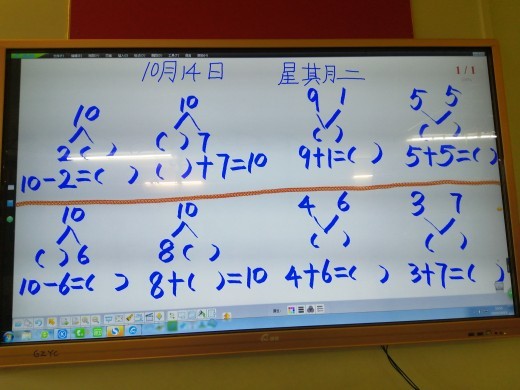 10月14日 星其月二
1/1
10 10 9 1 5 5
2( ) ( )7 ( ) ( )
10-2=( ) ( )+7=10 9+1=( ) 5+5=( )
10 10 4 6 3 7
( )6 8( ) ( ) ( )
10-6=( ) 8+( )=10 4+6=( ) 3+7=( )
GZYC